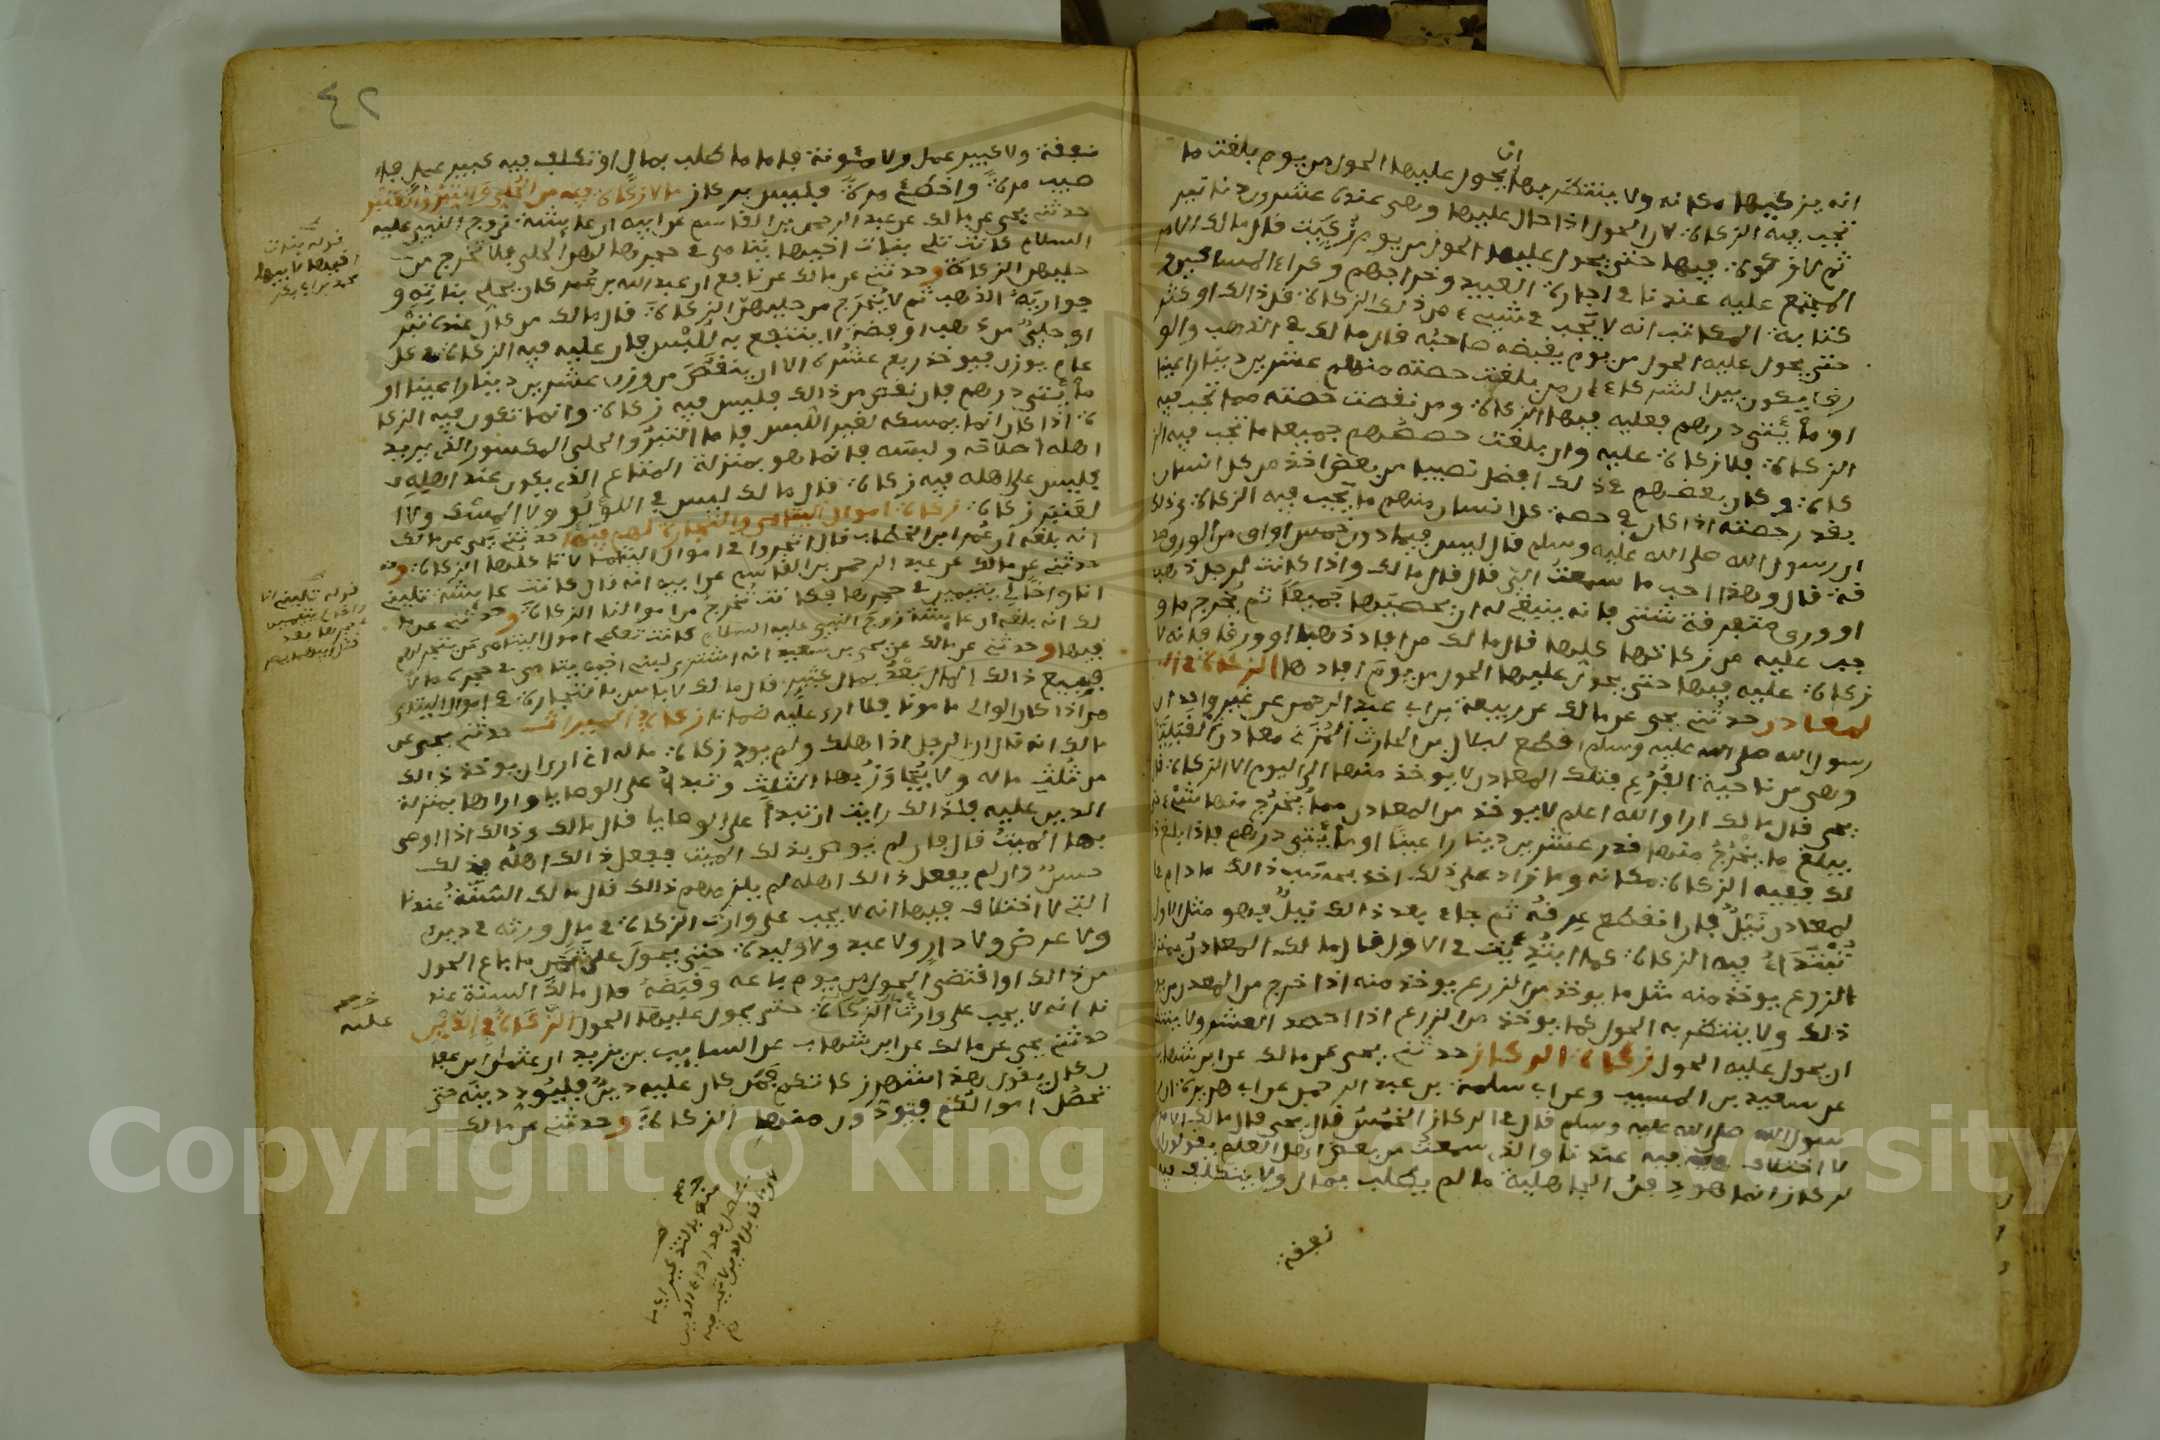 انه يزكيها مكانه ولا ينتظر بها ان يحول عليها الحول من يوم بلغت ما
تجب فيه الزكاة لان الحول اذا حال عليها وهي عنده عشرون دنانير
ثم لا زكاة فيها حتى يحول عليها الحول من يوم زكيت قال مالك الامر
المجتمع عليه عندنا في اجارة العبيد وخراجهم وكراء المساكين
كتابة المكاتب انه لا يجب في شيء من ذلك الزكاة قل ذالك او كثر
حتى يحول عليه الحول من يوم يقبضه صاحبه قال مالك في الذهب والو
رق يكون بين الشركاء ان من بلغت حصته منهم عشرين دينارا عينا
او مائتي درهم فعليه فيها الزكاة ومن نقصت حصته مما تجب فيه
الزكاة فلا زكاة عليه وان بلغت حصصهم جميعا ما تجب فيه الز
كاة وكان بعضهم في ذلك افضل نصيبا من بعض اخذ من كل انسان
بقدر حصته اذا كان في حصة كل انسان منهم ما تجب فيه الزكاة وذلك
ان رسول الله صلى الله عليه وسلم قال ليس فيما دون خمس اواق من الورق صد
قة قال وهذا احب ما سمعت الي قال قال مالك واذا كانت لرجل ذهب
او ورق متفرقة شتى فانه ينبغي له ان يحصيها جميعا ثم يخرج ما و
جب عليه من زكاتها كلها قال مالك من افاد ذهبا او ورقا فانه لا
زكاة عليه فيها حتى يحول عليها الحول من يوم افادها الزكاة في ال
لمعادن حدثني يحيى عن مالك عن ربيعة بن ابي عبد الرحمن عن غير واحد ان
رسول الله صلى الله عليه وسلم اقطع لبلال بن الحارث المزني معادن القبلية
وهي من ناحية الفرع فتلك المعادن لا يوخذ منها الى اليوم الا الزكاة قال
يحيى قال مالك ارى والله اعلم لا يوخذ من المعادن مما يخرج منها شيء
يبلغ ما يخرج منها قدر عشرين دينارا عينا او مائتي درهم فاذا بلغ ذ
لك ففيه الزكاة مكانه وما زاد على ذلك اخذ بحساب ذالك ما دام في ا
لمعادن نيل فان انقطع عرقه ثم جاء بعد ذالك نيل فهو مثل الاول
تبتدا فيه الزكاة كما ابتديت في الاول قال مالك المعادن بمنز
الزرع يوخذ منه مثل ما يوخذ من الزرع يوخذ منه اذا خرج من المعدن من يو
ذلك ولا ينتظر به الحول كما يوخذ من الزرع اذا احصد العشر ولا ينتظر
ان يحول عليه الحول زكاة الركاز حدثني يحيى عن مالك عن ابن شهاب
عن سعيد بن المسيب وعن ابي سلمة بن عبد الرحمن عن ابي هريرة ان ر
سول الله صلى الله عليه وسلم قال في الركاز الخمس قال يحيى قال مالك الامر
لا اختلاف فيه عندنا والذي سمعت من بعض اهل العلم يقولون ان ا
لركاز انما هو دفن الجاهلية ما لم يطلب بمال ولا يتكلف فيه
نفقة
٤٢
نفقة ولا كبير عمل ولا مئونة فاما ما طلب بمال او تكلف فيه كبير عمل فا
صيب مرة واخطئ مرة فليس بركاز ما لا زكاة فيه من الحلي والتبر والعنبر
حدثني يحيى عن مالك عن عبد الرحمن بن القاسم عن ابيه ان عايشة زوج النبي عليه
السلام كانت تلي بنات اخيها يتامى في حجرها لهن الحلي فلا تخرج من
حليهن الزكاة وحدثني عن مالك عن نافع ان عبد الله بن عمر كان يحلي بناته و
جواريه الذهب ثم لا يخرج من حليهن الزكاة قال مالك من كان عنده تبر
او حلي من ذهب او فضة لا ينتفع به للبس فان عليه فيه الزكاة في كل
عام يوزن فيوخذ ربع عشره الا ان ينقص من وزن عشرين دينارا عينا او
مائتي درهم فان نقص من ذالك فليس فيه زكاة وانما تكون فيه الزكا
ة اذا كان انما يمسكه لغير اللبس فاما التبر والحلي المكسور الذي يريد
اهله اصلاحه ولبسه فانما هو بمنزلة المتاع الذي يكون عند اهله
فليس على اهله فيه زكاة قال مالك ليس في اللؤلؤ ولا المسك ولا ا
لعنبر زكاة زكاة اموال اليتامى والتجارة لهم فيها حدثني يحيى عن مالك
انه بلغه ان عمر ابن الخطاب قال اتجروا في اموال اليتامى لا تاكلها الزكاة و
حدثني عن مالك عن عبد الرحمن بن القاسم عن ابيه انه قال كانت عايشة تليني
انا واخا لي يتيمين في حجرها فكانت تخرج من اموالنا الزكاة وحدثني عن ما
لك انه بلغه ان عايشة زوج النبي عليه السلام كانت تعطي اموال اليتامى من يتجر لهم
فيها وحدثني عن مالك عن يحيى بن سعيد انه اشترى لبني اخيه يتامى في حجره مالا
فبيع ذالك المال بعد بمال كثير قال مالك لا باس بالتجارة في اموال اليتامى
من اذا كان الوالي مامونا فلا ارى عليه ضمانا زكاة الميراث حدثني يحيى عن
مالك انه قال ان الرجل اذا هلك ولم يود زكاة ماله اني ارى ان يوخذ ذالك
من ثلث ماله ولا يجاوز بها الثلث وتبدا على الوصايا واراها بمنزلة
الدين عليه فلذالك رايت ان تبدا على الوصايا قال مالك وذالك اذا اوصى
بها الميت قال فان لم يوص بذلك الميت ففعل ذالك اهله فذلك
حسن وان لم يفعل ذالك اهله لم يلزمهم ذالك قال مالك السنة عندنا
التي لا اختلاف فيها انه لا يجب على وارث الزكاة في مال ورثه في دين
ولا عرض ولا دار ولا عبد ولا وليدة حتى يحول على ثمن ما باع الحول
من ذالك او اقتضى الحول من يوم باعه وقبضه قال مالك السنة عند
نا انه لا يجب على وارث الزكاة حتى يحول عليها الحول الزكاة في الدين
حدثني يحيى عن مالك عن ابن شهاب عن السايب بن يزيد ان عثمان بن عفا
ن كان يقول هذا شهر زكاتكم فمن كان عليه دين فليود دينه حتى
تحصل اموالكم فتودون منها الزكاة وحدثني عن مالك
قوله بنات
اخيها لابيها
محمد بن ابي بكر
عليه